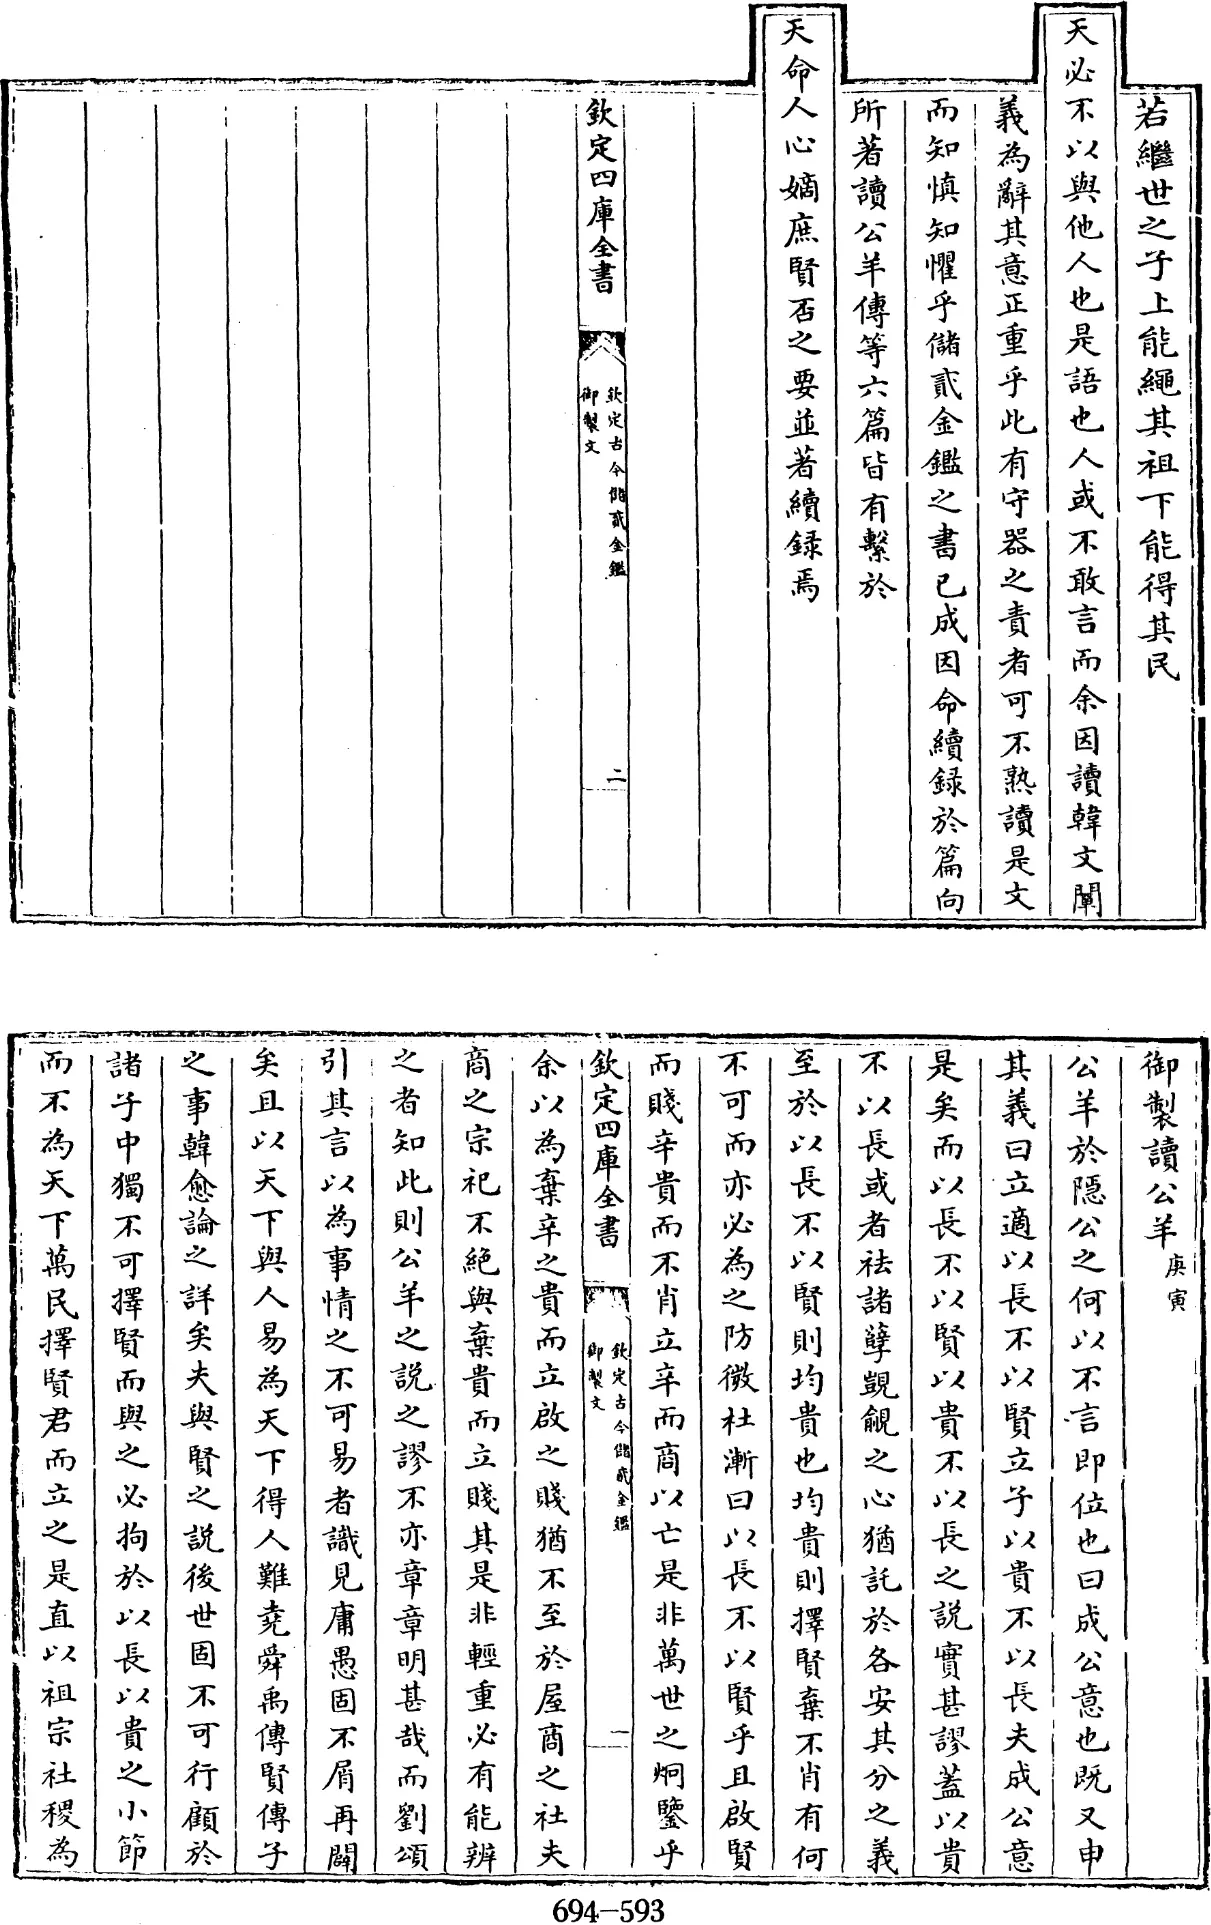 若繼世之子上能繩其祖下能得其民
天必不以與他人也是語也人或不敢言而余因讀韓文闡
義為辭其意正重乎此有守器之責者可不熟讀是文
而知慎知懼乎儲貳金鑑之書已成因命續録於篇向
所著讀公羊傳等六篇皆有繫於
天命人心嫡庶賢否之要並著續録焉
欽定四庫全書
欽定古今儲貳金鑑
御製文
二
御製讀公羊庚寅
公羊於隱公之何以不言即位也曰成公意也既又申
其義曰立適以長不以賢立子以貴不以長夫成公意
是矣而以長不以賢以貴不以長之說實甚謬蓋以貴
不以長或者祛諸孽覬覦之心猶託於各安其分之義
至於以長不以賢則均貴也均貴則擇賢棄不肖有何
不可而亦必為之防微杜漸曰以長不以賢乎且啟賢
而賤辛貴而不肖立辛而商以亡是非萬世之炯鑒乎
欽定四庫全書
欽定古今儲貳金鑑
御製文
一
余以為棄辛之貴而立啟之賤猶不至於屋商之社夫
商之宗祀不絕與棄貴而立賤其是非輕重必有能辨
之者知此則公羊之說之謬不亦章章明甚哉而劉頌
引其言以為事情之不可易者識見庸愚固不屑再闢
矣且以天下與人易為天下得人難堯舜禹傳賢傳子
之事韓愈論之詳矣夫與賢之說後世固不可行顧於
諸子中獨不可擇賢而與之必拘於以長以貴之小節
而不為天下萬民擇賢君而立之是直以祖宗社稷為
694-593